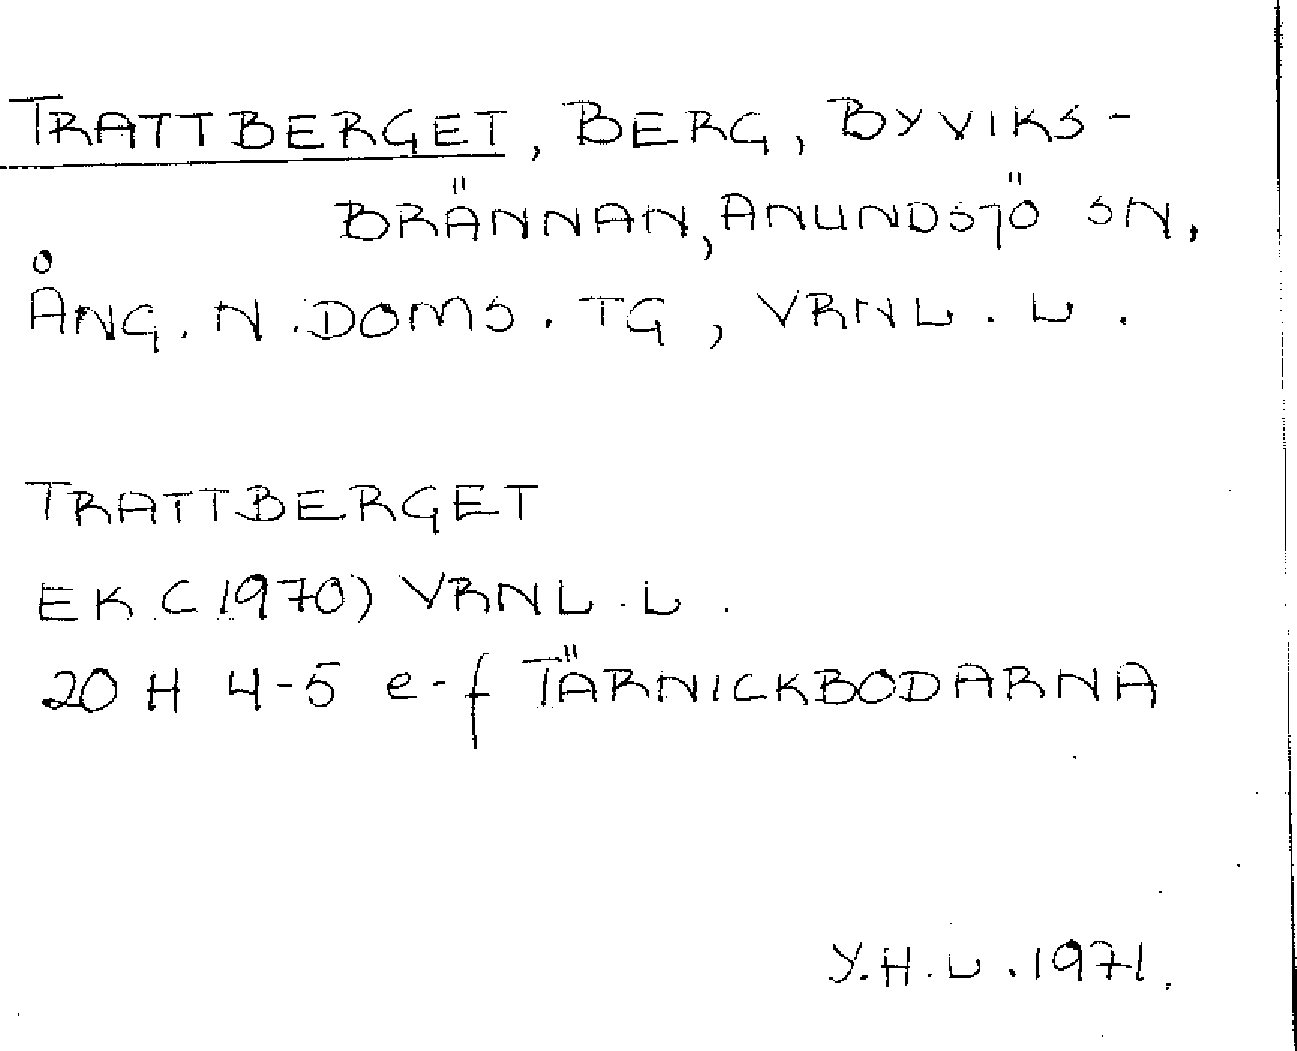 TRATTBERGET, BERG, BYVIKS-
BRÄNNAN, ANUNDSJÖ SN,
ÅNG. N. DOMS. TG, VRNL. L.
TRATTBERGET
EK (1970) VRNL. L.
20 H 4-5 e-f TÄRNICKBODARNA
Y.H.L. 1971.